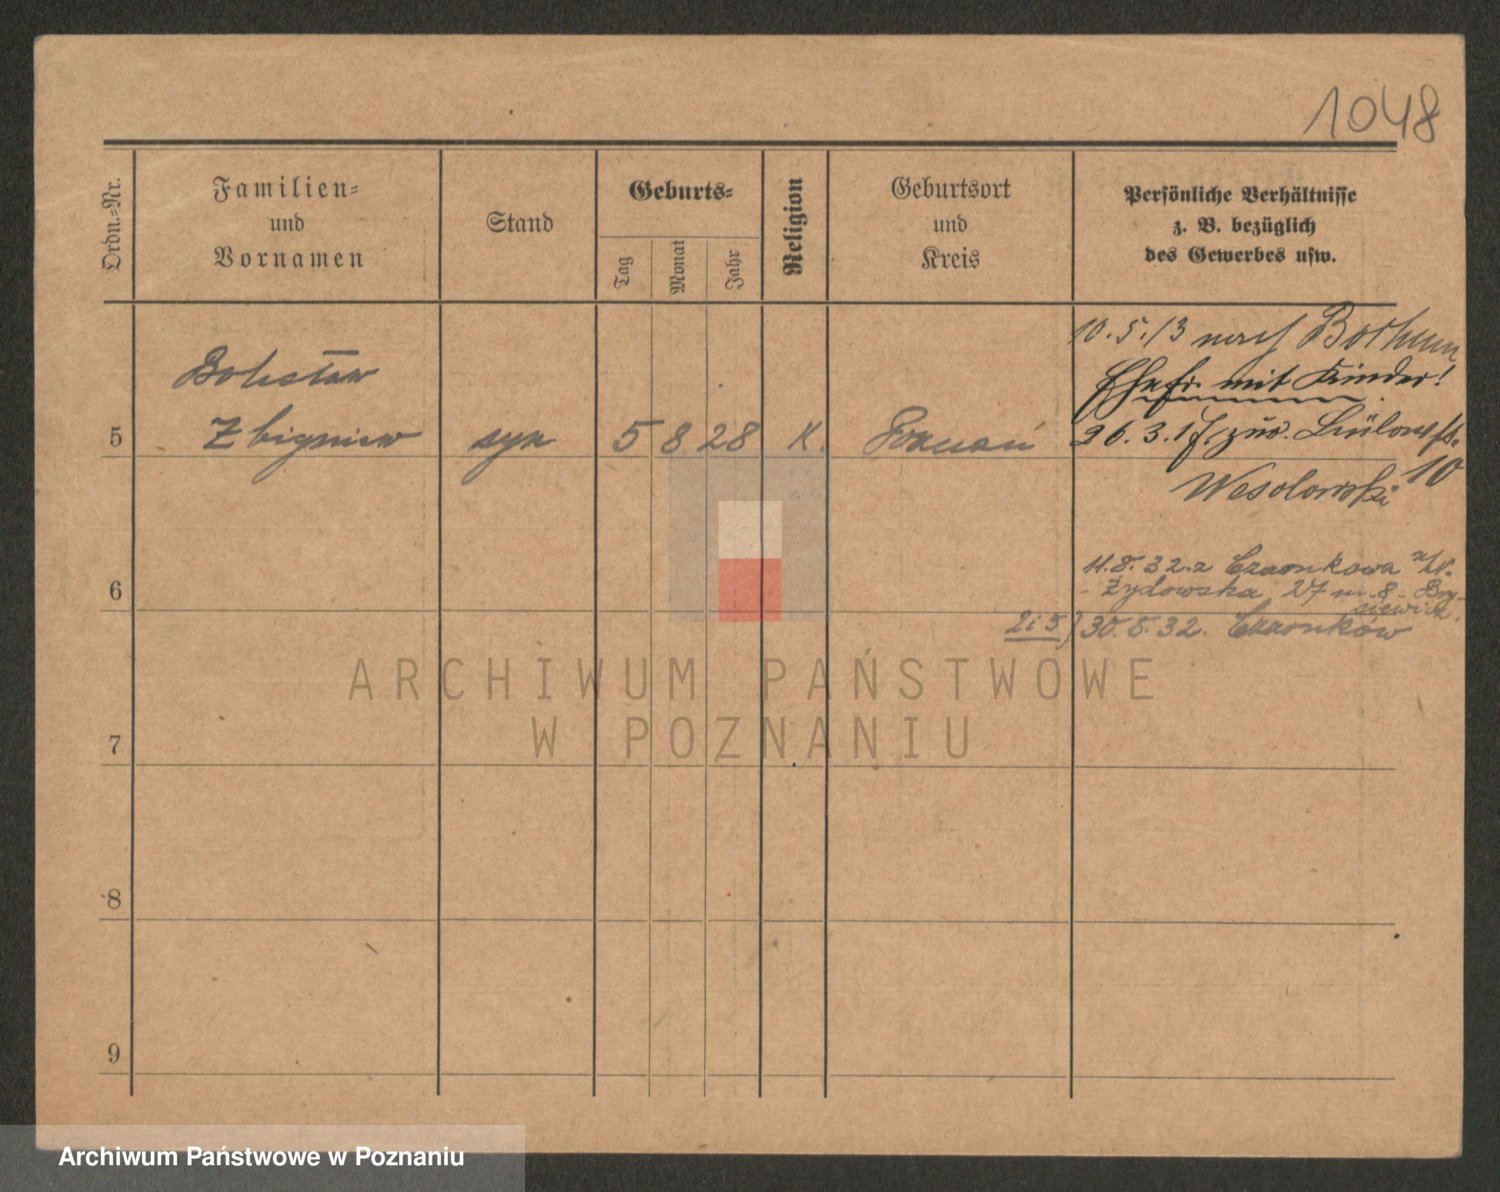 1048
Ordn.-Nr.
Familien-
und
Vornamen
Stand
Geburts-
Tag
Monat
Jahr
Religion
Geburtsort
und
Kreis
Persönliche Verhältnisse
z. B. bezüglich
des Gewerbes usw.
10.5.13 nach Bochum
Ehefr. mit Kinder!
Bolesław
5 Zbigniew syn 5 8 28 K. Poznań
26.3.17 zur. Bülowst.
10
Wesolowski
11.8.32. z Czarnkowa
6 Żydowska 27 m. 8 -
2 i 5) 30.8.32. Czarnków
ARCHIWUM PAŃSTWOWE
W POZNANIU
7
8
9
Archiwum Państwowe w Poznaniu